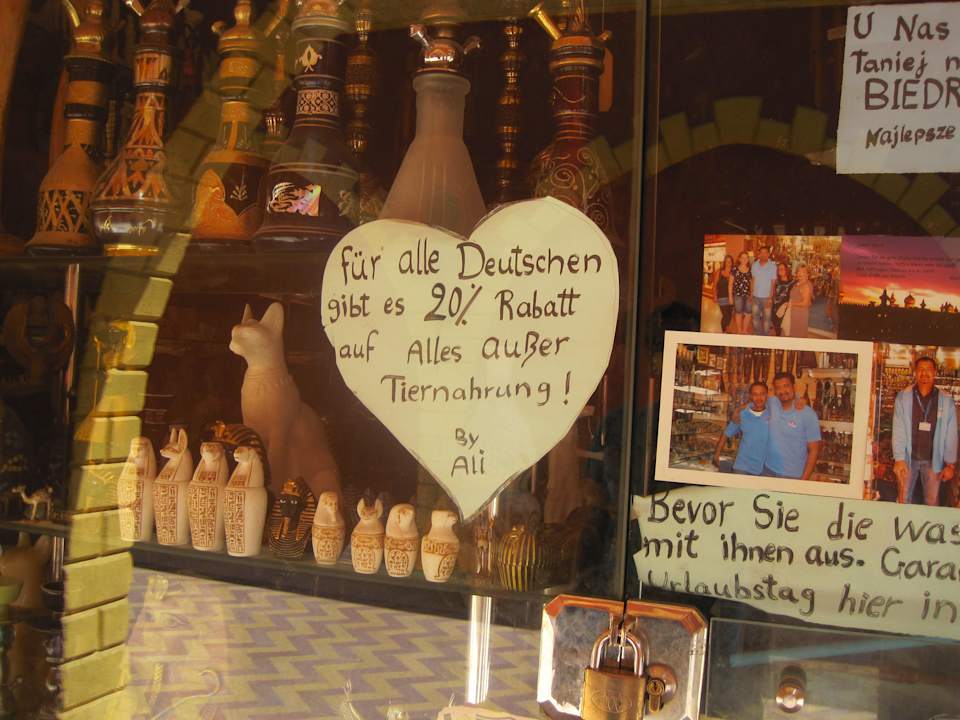 für alle Deutschen
gibt es 20% Rabatt
auf Alles außer
Tiernahrung!
By
Ali
U Nas
Taniej
BIEDR
Najlepsze
Bevor Sie die was
mit ihnen aus. Gara
Urlaubstag hier in